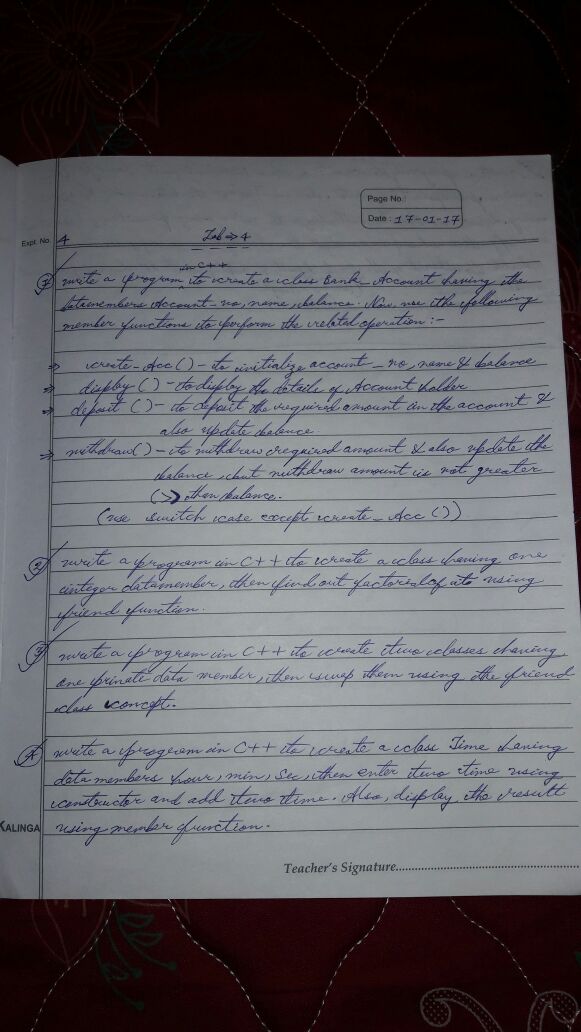 Page No.
Date : 17-01-17
Expt. No. 4
Lab ⇒ 4
in C++
1) write a program to create a class Bank_Account having the
datamembers Account-no, name, balance. Now use the following
member functions to perform the related operation:-
⇒ create-Acc() - to initialize account_no, name & balance
⇒ display() - to display the details of Account holder
⇒ deposit () - to deposit the required amount in the account &
also update balance.
⇒ withdraw() - to withdraw required amount & also update the
balance, but withdraw amount is not greater
(>) than balance.
(use switch case except create_Acc())
2) write a program in C++ to create a class having one
integer datamember, then find out factorial of it using
friend function.
3) write a program in C++ to create two classes having
one private data member, then swap them using the friend
class concept.
4) write a program in C++ to create a class Time having
data members hour, min, sec, then enter two time using
constructor and add two time. Also, display the result
KALINGA using member function.
Teacher's Signature